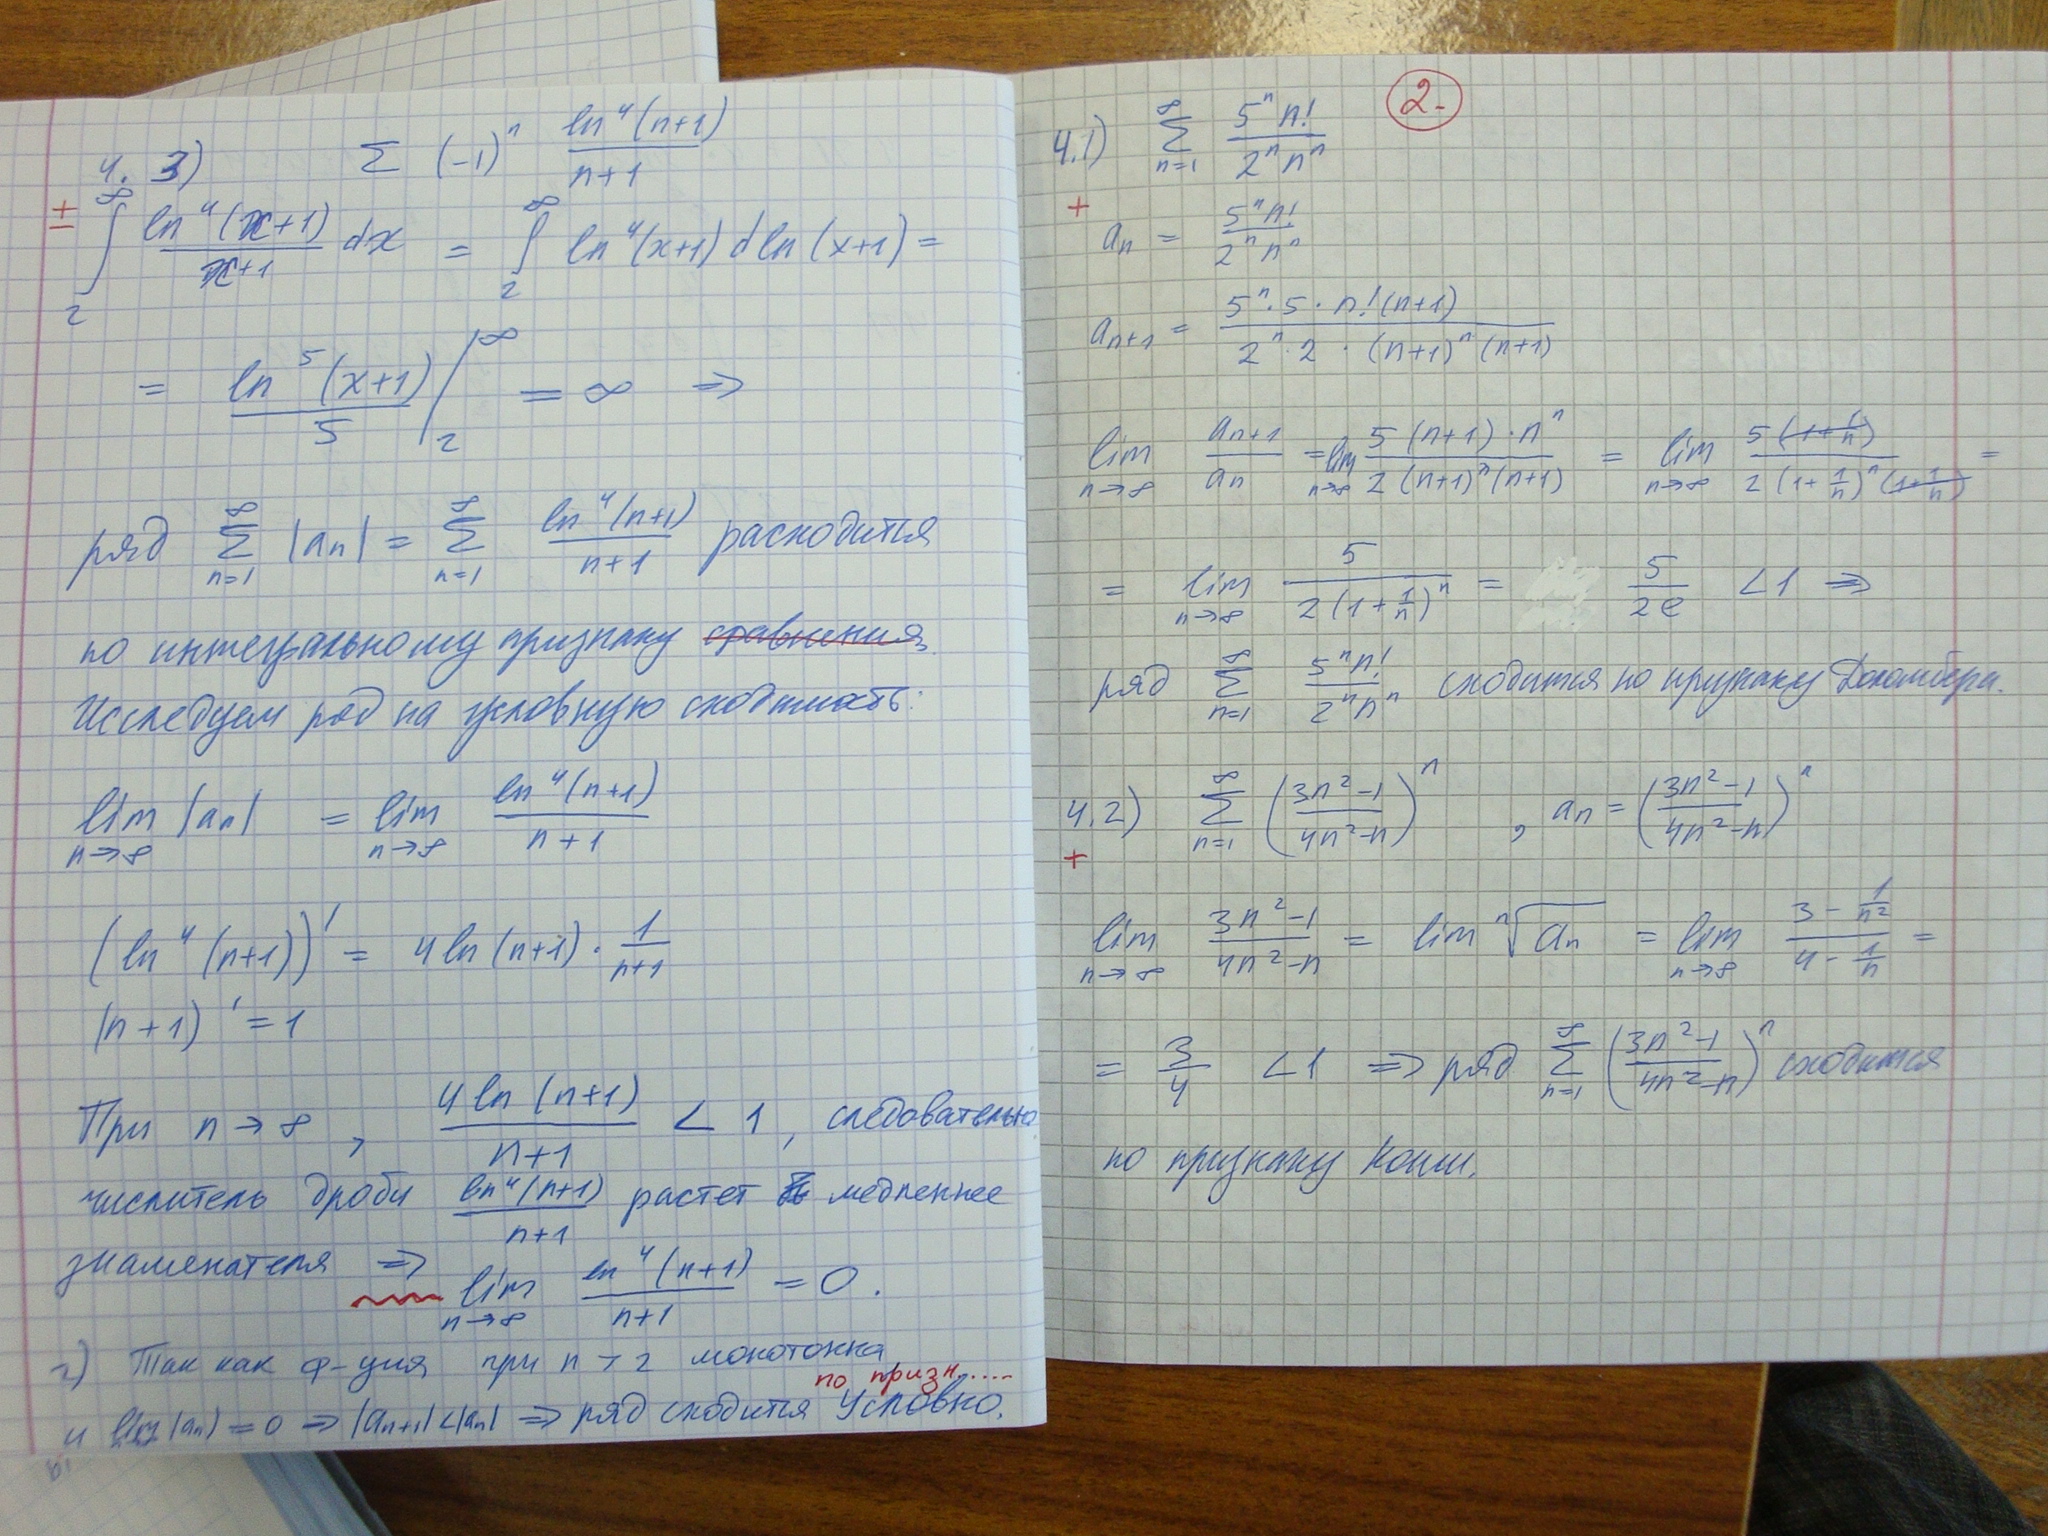 4. 3) ∑ (-1)ⁿ ln⁴(n+1)/(n+1)
±
∫₂^∞ ln⁴(x+1)/(x+1) dx = ∫₂^∞ ln⁴(x+1) d ln(x+1) =
= ln⁵(x+1)/5 |₂^∞ = ∞ ⇒
ряд ∑_{n=1}^∞ |aₙ| = ∑_{n=1}^∞ ln⁴(n+1)/(n+1) расходится
по интегральному признаку сравнения.
Исследуем ряд на условную сходимость:
lim_{n→∞} |aₙ| = lim_{n→∞} ln⁴(n+1)/(n+1)
(ln⁴(n+1))' = 4 ln(n+1) · 1/(n+1)
(n+1)' = 1
При n→∞, 4 ln(n+1)/(n+1) < 1, следовательно
числитель дроби ln⁴(n+1)/(n+1) растет медленнее
знаменателя ⇒ lim_{n→∞} ln⁴(n+1)/(n+1) = 0.
2) Так как ф-ция при n > 2 монотонна
по призн.....
и lim |aₙ| = 0 ⇒ |aₙ₊₁| < |aₙ| ⇒ ряд сходится условно.
2.
4.1) ∑_{n=1}^∞ 5ⁿn!/(2ⁿnⁿ)
+
aₙ = 5ⁿn!/(2ⁿnⁿ)
aₙ₊₁ = 5ⁿ·5·n!(n+1)/(2ⁿ·2·(n+1)ⁿ(n+1))
lim_{n→∞} aₙ₊₁/aₙ = lim_{n→∞} 5(n+1)·nⁿ/(2(n+1)ⁿ(n+1)) = lim_{n→∞} 5(1+1/n)/(2(1+1/n)ⁿ(1+1/n)) =
= lim_{n→∞} 5/(2(1+1/n)ⁿ) = 5/(2e) < 1 ⇒
ряд ∑_{n=1}^∞ 5ⁿn!/(2ⁿnⁿ) сходится по признаку Даламбера.
4.2) ∑_{n=1}^∞ ((3n²-1)/(4n²-n))ⁿ, aₙ = ((3n²-1)/(4n²-n))ⁿ
+
lim_{n→∞} (3n²-1)/(4n²-n) = lim ⁿ√aₙ = lim_{n→∞} (3 - 1/n²)/(4 - 1/n) =
= 3/4 < 1 ⇒ ряд ∑_{n=1}^∞ ((3n²-1)/(4n²-n))ⁿ сходится
по признаку Коши.